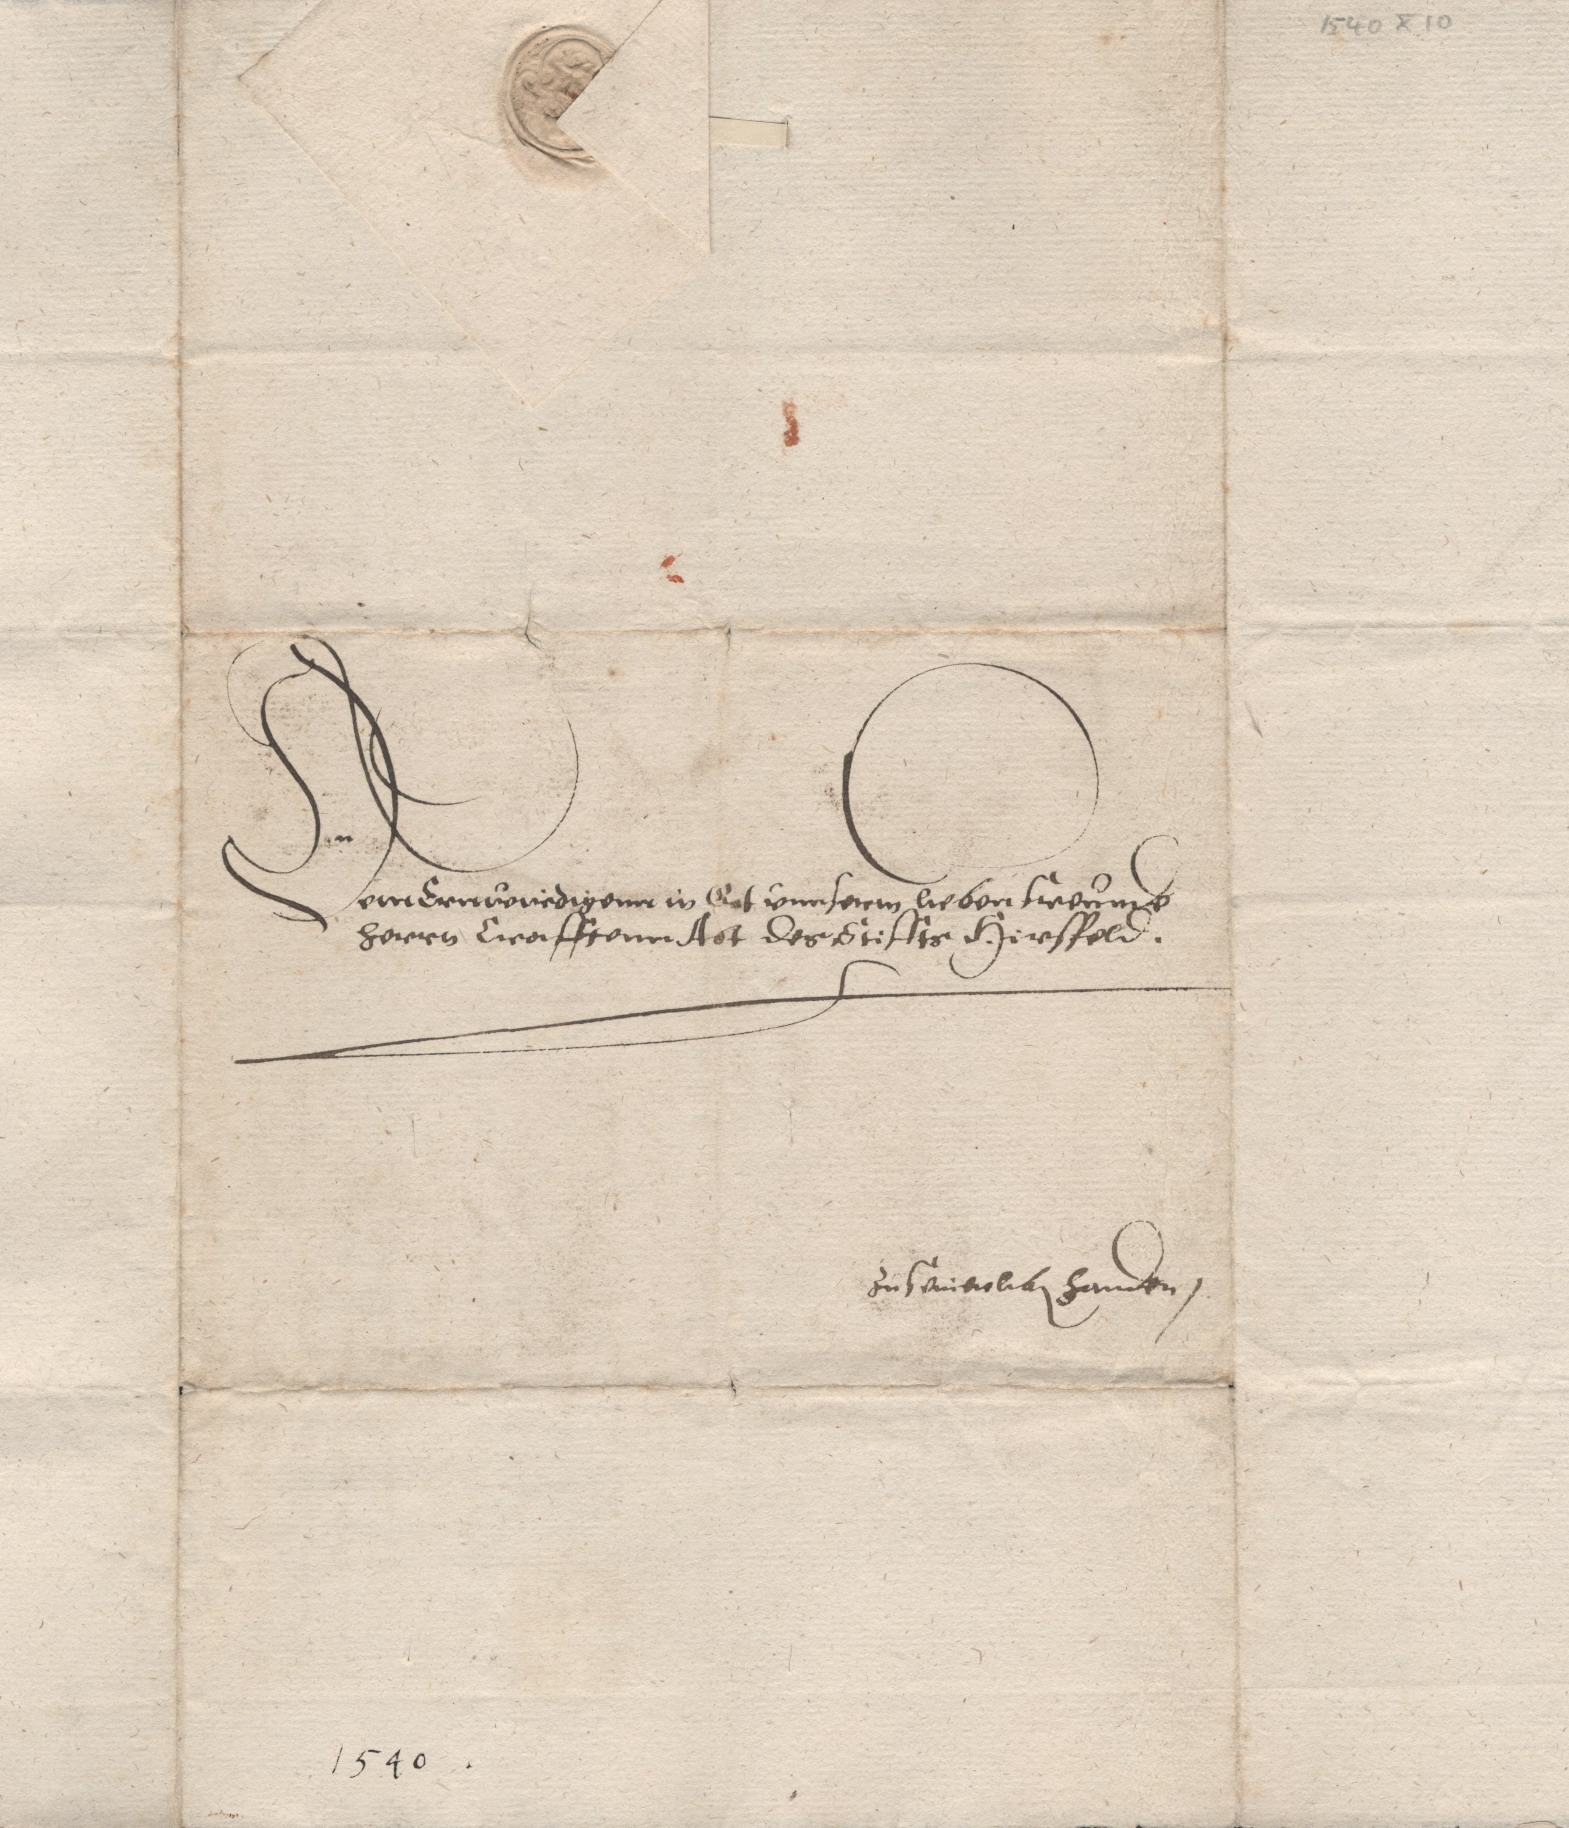 1540 X 10
Dem Erwirdigenn in Got vnnserm lieben freunde
herrn Crafftenn Abt des Stiffts Hirsfeld.
Zu handen
1540.